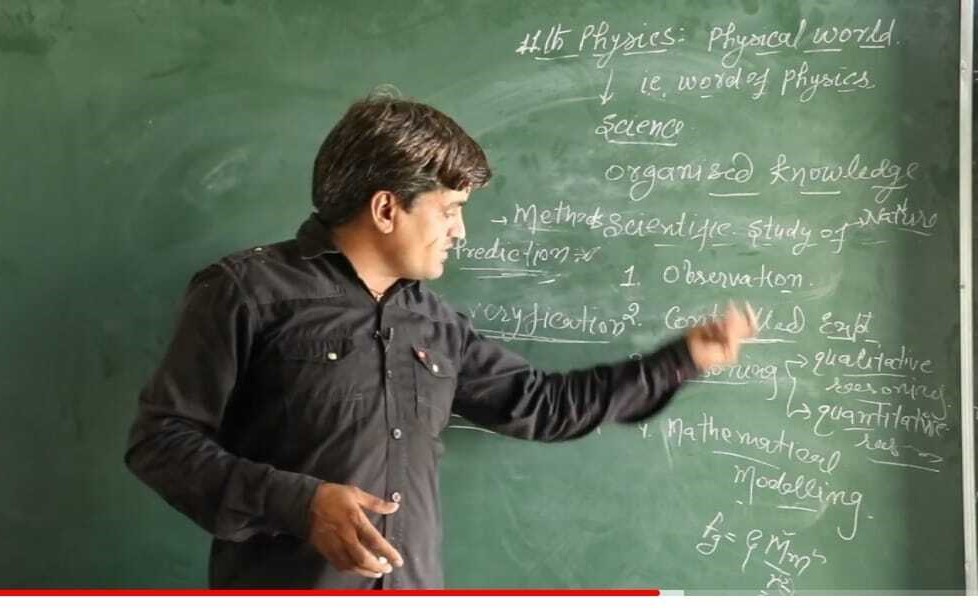 11th Physics: Physical world.
↓ i.e. word of physics
Science
organised knowledge
→ Method Scientific Study of → Nature
Prediction
1. Observation.
veryfication 2. Expt
→ qualitative
reasoning
→ quantitative
4. Mathematical
Modelling.